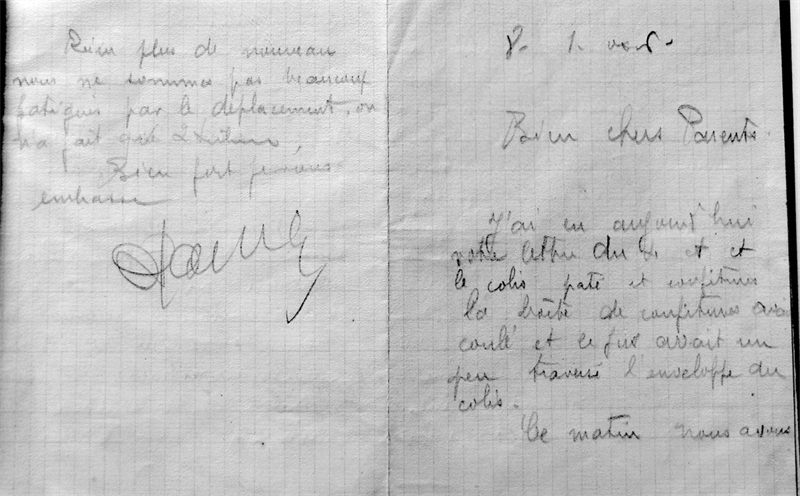 Rien plus de nouveau
nous ne sommes pas beaucoup
fatigués par le déplacement, on
n'a fait que 2
Bien fort je vous
embrasse
8- 1.
Bien chers Parents.
J'ai eu aujourd'hui
votre lettre du 4 et et
le colis paté et confitures
la boîte de confitures avai
coulé et le jus avait un
peu traversé l'enveloppe du
colis.
Ce matin nous avons